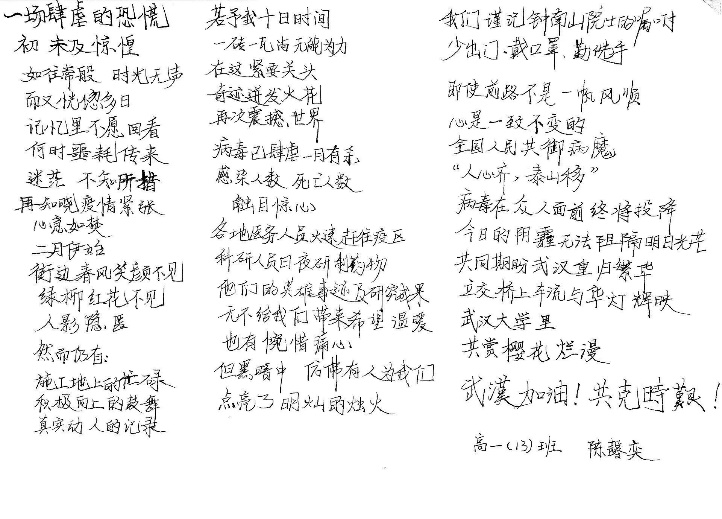 一场肆虐的恐慌
初 未及惊惶
如往常般 时光无声
而又恍惚多日
记忆里不愿回看
何时噩耗传来
迷茫 不知所措
再知晓疫情紧张
心急如焚
二月伊始
街边春风笑颜不见
绿柳红花不见
人影隐匿
然而仍有:
施工地上的忙碌
积极向上的鼓舞
真实动人的记录
若予我十日时间
一砖一瓦尚无能为力
在这紧要关头
奇迹迸发火花
再次震撼世界
病毒已肆虐一月有余
感染人数 死亡人数
触目惊心
各地医务人员火速赶往疫区
科研人员日夜研制药物
他们的英雄事迹及研究成果
无不给我们带来希望温暖
也有惋惜痛心
但黑暗中 仿佛有人为我们
点亮了明灿的烛火
我们谨记钟南山院士的嘱咐
少出门、戴口罩、勤洗手
即使前路不是一帆风顺
心是一致不变的
全国人民共御病魔
“人心齐,泰山移”
病毒在众人面前终将投降
今日的阴霾无法阻隔明日光芒
共同期盼武汉重归繁华
立交桥上车流与华灯辉映
武汉大学里
共赏樱花烂漫
武漢加油!共克時艱!
高一(13)班 陈馨奕